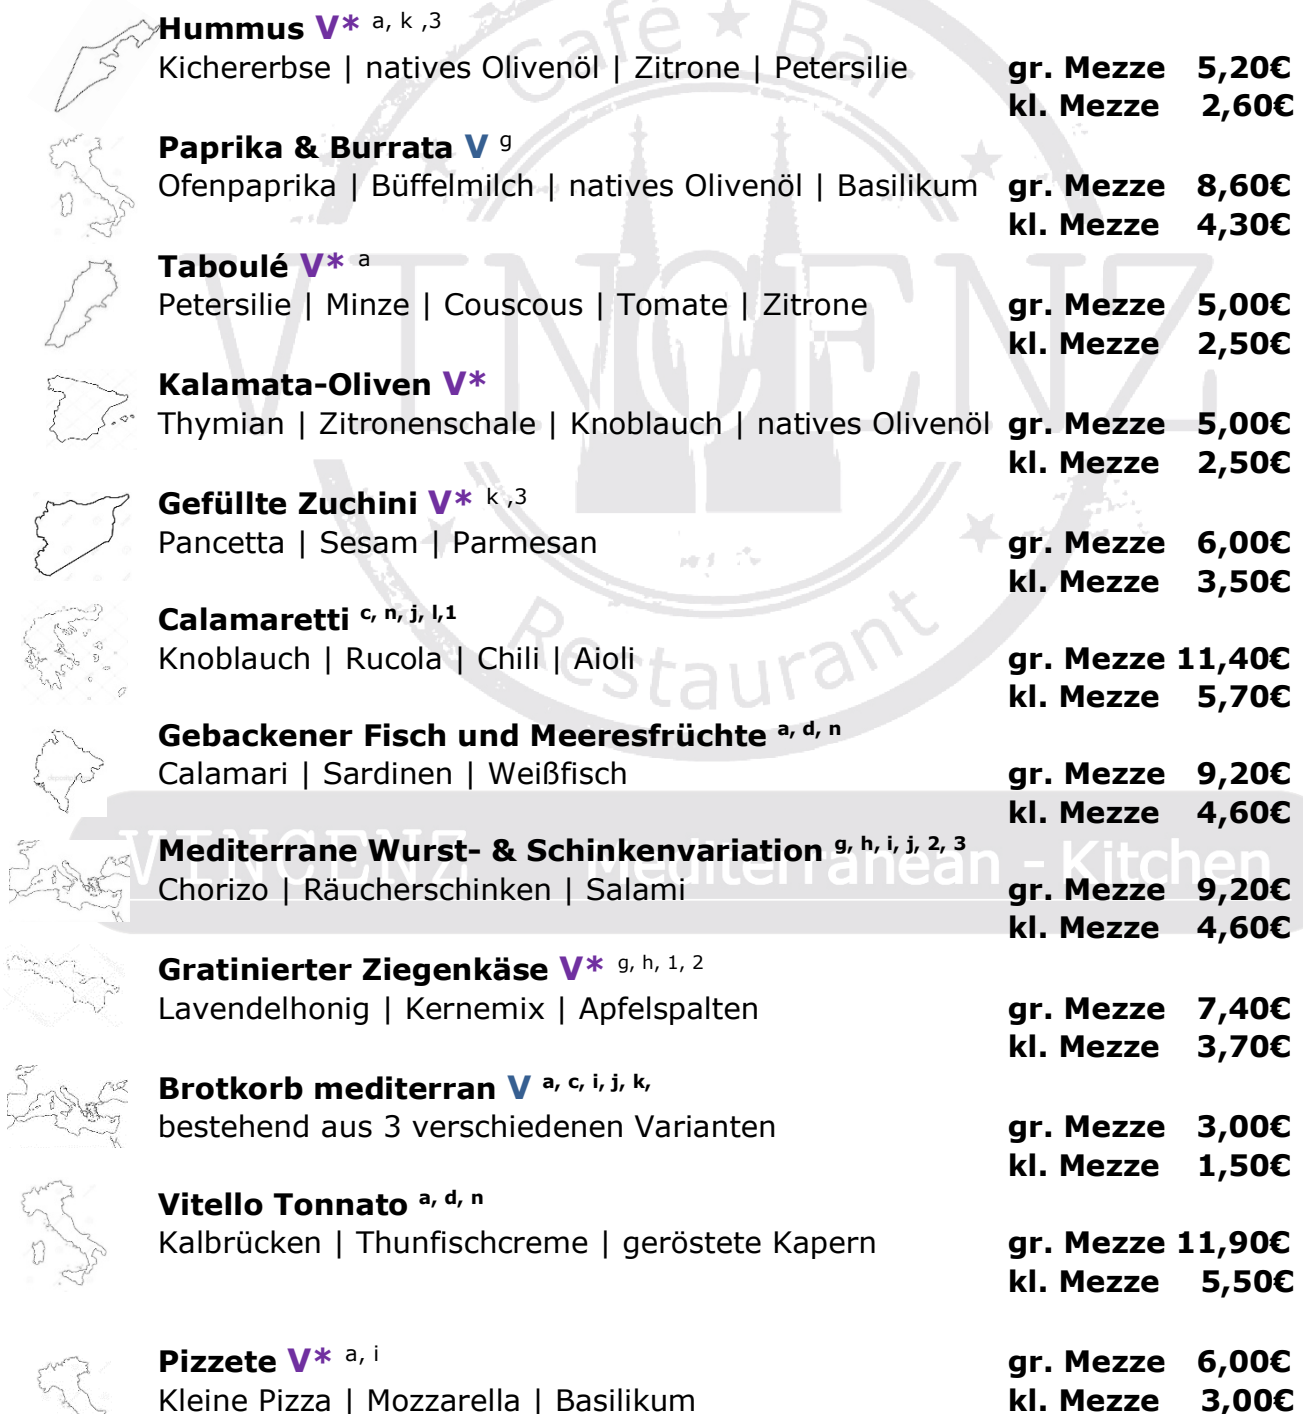 Café ★ Bar
Hummus V* a, k ,3
Kichererbse | natives Olivenöl | Zitrone | Petersilie gr. Mezze 5,20€
kl. Mezze 2,60€
Paprika & Burrata V g
Ofenpaprika | Büffelmilch | natives Olivenöl | Basilikum gr. Mezze 8,60€
kl. Mezze 4,30€
Taboulé V* a
Petersilie | Minze | Couscous | Tomate | Zitrone gr. Mezze 5,00€
kl. Mezze 2,50€
VINCENZ
Kalamata-Oliven V*
Thymian | Zitronenschale | Knoblauch | natives Olivenöl gr. Mezze 5,00€
kl. Mezze 2,50€
Gefüllte Zuchini V* k ,3
Pancetta | Sesam | Parmesan gr. Mezze 6,00€
kl. Mezze 3,50€
Restaurant
Calamaretti c, n, j, l,1
Knoblauch | Rucola | Chili | Aioli gr. Mezze 11,40€
kl. Mezze 5,70€
Gebackener Fisch und Meeresfrüchte a, d, n
Calamari | Sardinen | Weißfisch gr. Mezze 9,20€
kl. Mezze 4,60€
VINCENZ - Mediterranean - Kitchen
Mediterrane Wurst- & Schinkenvariation g, h, i, j, 2, 3
Chorizo | Räucherschinken | Salami gr. Mezze 9,20€
kl. Mezze 4,60€
Gratinierter Ziegenkäse V* g, h, 1, 2
Lavendelhonig | Kernemix | Apfelspalten gr. Mezze 7,40€
kl. Mezze 3,70€
Brotkorb mediterran V a, c, i, j, k,
bestehend aus 3 verschiedenen Varianten gr. Mezze 3,00€
kl. Mezze 1,50€
Vitello Tonnato a, d, n
Kalbrücken | Thunfischcreme | geröstete Kapern gr. Mezze 11,90€
kl. Mezze 5,50€
Pizzete V* a, i gr. Mezze 6,00€
Kleine Pizza | Mozzarella | Basilikum kl. Mezze 3,00€